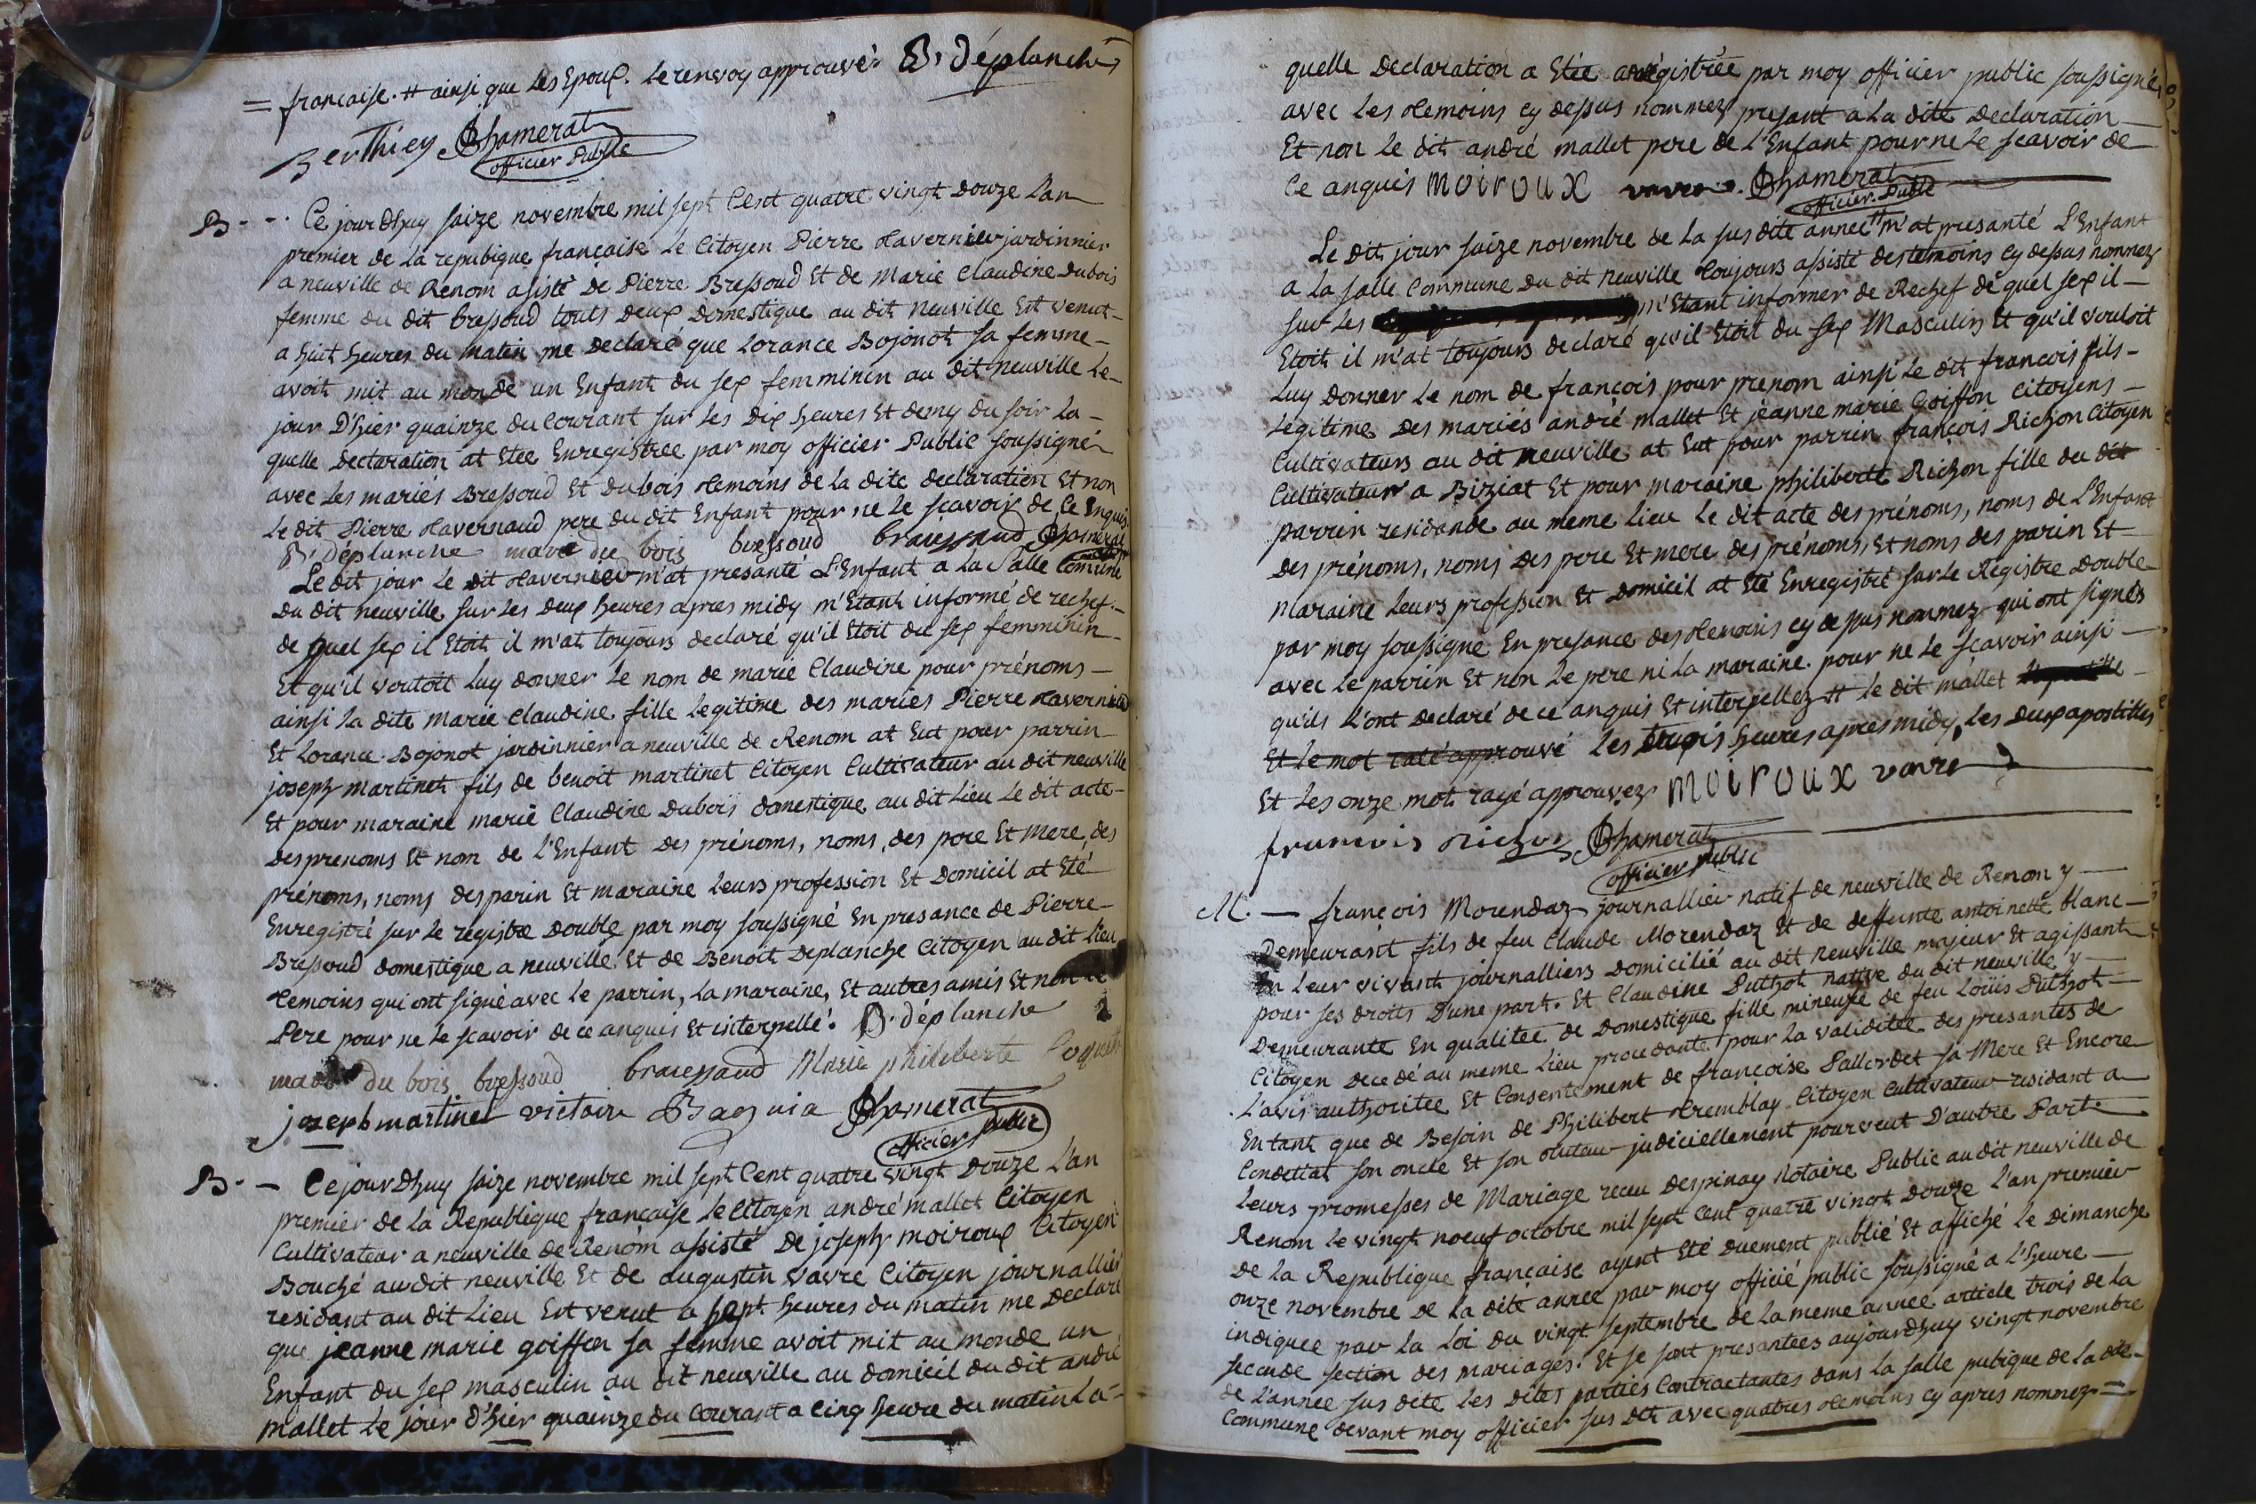 = francaise. # ainsi que Les Epoux. Le renvoy approuvé. B. déplanche
Berthiey Chamerat
officier Public
B. - Ce jourdhuy saize novembre mil sept Cent quatre vingt douze L'an
premier de La repubique française Le Citoyen Pierre Tavernier jardinnier
a neuville de Renom asisté De Pierre Bressoud Et de Marie Claudine Dubois
femme du dit bressoud touts deux Domestique au dit Neuville Est venut -
a huit heures du matin me Declaré que Lorance Bojonot sa femme -
avoit mit au monde un Enfant du sex femminin au dit neuville Le -
jour D'hier quainze du Courant sur Les Dix heures Et demy du soir La -
quelle Declaration at Etee Enregistree par moy officier Public soussigné
avec Les mariés Bressoud Et dubois temoins de La dite declaration Et non
Le dit Pierre Tavernaud pere du dit Enfant pour ne Le scavoir de Ce Enquis
B. déplanche marie du bois bressoud braissaud Chamerat
Le dit jour Le dit Tavernier m'at presanté L'Enfant a La Salle Comune
Du dit neuville sur Les deux heures apres midy m'Etant informé de rechef. -
de quel sex il Etoit il m'at toujours declaré qu'il Etoit du sex femminin -
Et qu'il vouloit Luy donner Le nom de marie Claudine pour prénoms -
ainsi La dite marie Claudine fille Legitime des maries Pierre Tavernier
Et Lorance Bojonot jardinnier a neuville de Renom at Eut pour parrin
joseph martinet fils de benoit martinet Citoyen Cultivateur au dit neuville
Et pour maraine marie Claudine Dubois domestique au dit Lieu Le dit acte -
Des prenoms Et nom de L'Enfant Des prénoms, noms, des pere Et Mere, des
prénoms, noms des parin Et maraine Leurs profession Et Domicil at Eté
Enregistré sur Le registre Double par moy soussigné En presance de Pierre -
Bressoud domestique a neuville Et de Benoit Deplanche Citoyen au dit Lieu
temoins qui ont signé avec Le parrin, La maraine, Et autres amis Et non Le
Pere pour ne Le scavoir de ce anquis Et interpellé. B. déplanche
marie du bois bressoud braissaud Marie philiberte
joseph martinet victoire Chamerat
officier public
B. - Ce jourdhuy saize novembre mil sept Cent quatre vingt Douze L'an
premier de la Republique française Le Citoyen andré mallet Citoyen
Cultivateur a neuville de Renom assisté De joseph moiroux Citoyen
Bouché audit neuville Et de augustin vavre Citoyen journallier
residant au dit Lieu Est venut a sept heures du matin me Declaré
que jeanne marie goiffon sa femme avoit mit au monde un
Enfant du sex masculin au dit neuville au domicil du dit andré
mallet Le jour D'hier quainze du Courant a Cinq heure du matin La -
quelle Declaration a Etée anregistrée par moy officier public soussigné,
avec Les temoins cy dessus nommez presant a La dite Declaration -
Et non Le dit andré mallet pere de L'Enfant pour ne Le scavoir de -
Ce anquis moiroux vavre. Chamerat
officier Public
Le dit jour saize novembre de La sus dite année # m'at presanté L'Enfant
a La salle Commune Du dit neuville toujours assisté des temoins cy dessus nommez
sur Les m'Etant informer de Rechef de quel sex il -
Etoit il m'at toujours declaré qu'il Etoit du sex Masculin Et qu'il vouloit
Luy donner Le nom de françois pour prenom ainsi Le dit françois fils -
Legitime des mariés andré mallet Et jeanne marie Goiffon Citoyens -
Cultivateurs au dit neuville at Eut pour parrin françois Richon Citoyen
Cultivateur a Biziat Et pour maraine philiberte Richon fille du dit
parrin residande au meme Lieu Le dit acte des prénoms, noms de L'Enfant
Des prénoms, noms des pere Et mere des prénoms, Et noms des parin Et -
maraine Leurs profession Et Domicil at Eté Enregistré sur Le Registre Double
par moy soussigné En presance des temoins cy dessus nommez qui ont signés
avec Le parrin Et non Le pere ni La maraine pour ne Le scavoir ainsi -
qu'ils L'ont Declaré de ce anquis Et interpellez # Le dit mallet
Et Le mot raté approuvé Les trois heures apres midy, Les Deux apostilles
Et Les onze mot rayé approuvez moiroux vavre
francois Richon Chamerat
officier public
M. - françois Morendaz journallier natif de neuville de Renom y -
Demeurant fils de feu Claude Morendaz Et de deffeunte antoinette blanc -
En Leur vivant journalliers Domicilié au dit Neuville majeur Et agissant
pour ses droits D'une part. Et Claudine Puthot native du dit neuville y -
Demeurante En qualitée de Domestique fille mineuse de feu Loüis Puthot -
Citoyen decedé au meme Lieu procedante pour la validitée des presantes de
L'avis authoritee Et Consentement de françoise Pallordet sa Mere Et Encore
En tant que de Besoin de Philibert tremblay Citoyen Cultivateur residant a
Condeitiat son oncle Et son tuteur judiciellement pourveut D'autre Part. -
Leurs promesses de Mariage receu Despinay Notaire Public audit neuville de
Renom Le vingt noeuf octobre mil sept cent quatre vingt douze L'an premier
De La Republique française ayent Eté duement publié Et affiché Le Dimanche
onze novembre de La dite annee par moy officié public soussigné a L'heure -
indiquée par La Loi du vingt septembre de La meme annee article trois de La
seconde section des mariages. Et se sont presantees aujourdhuy vingt novembre
de L'année sus dite Les dites parties Contractantes dans La salle pubique de La dite -
Commune devant moy officier sus Dit avec quatres temoins cy apres nommez =